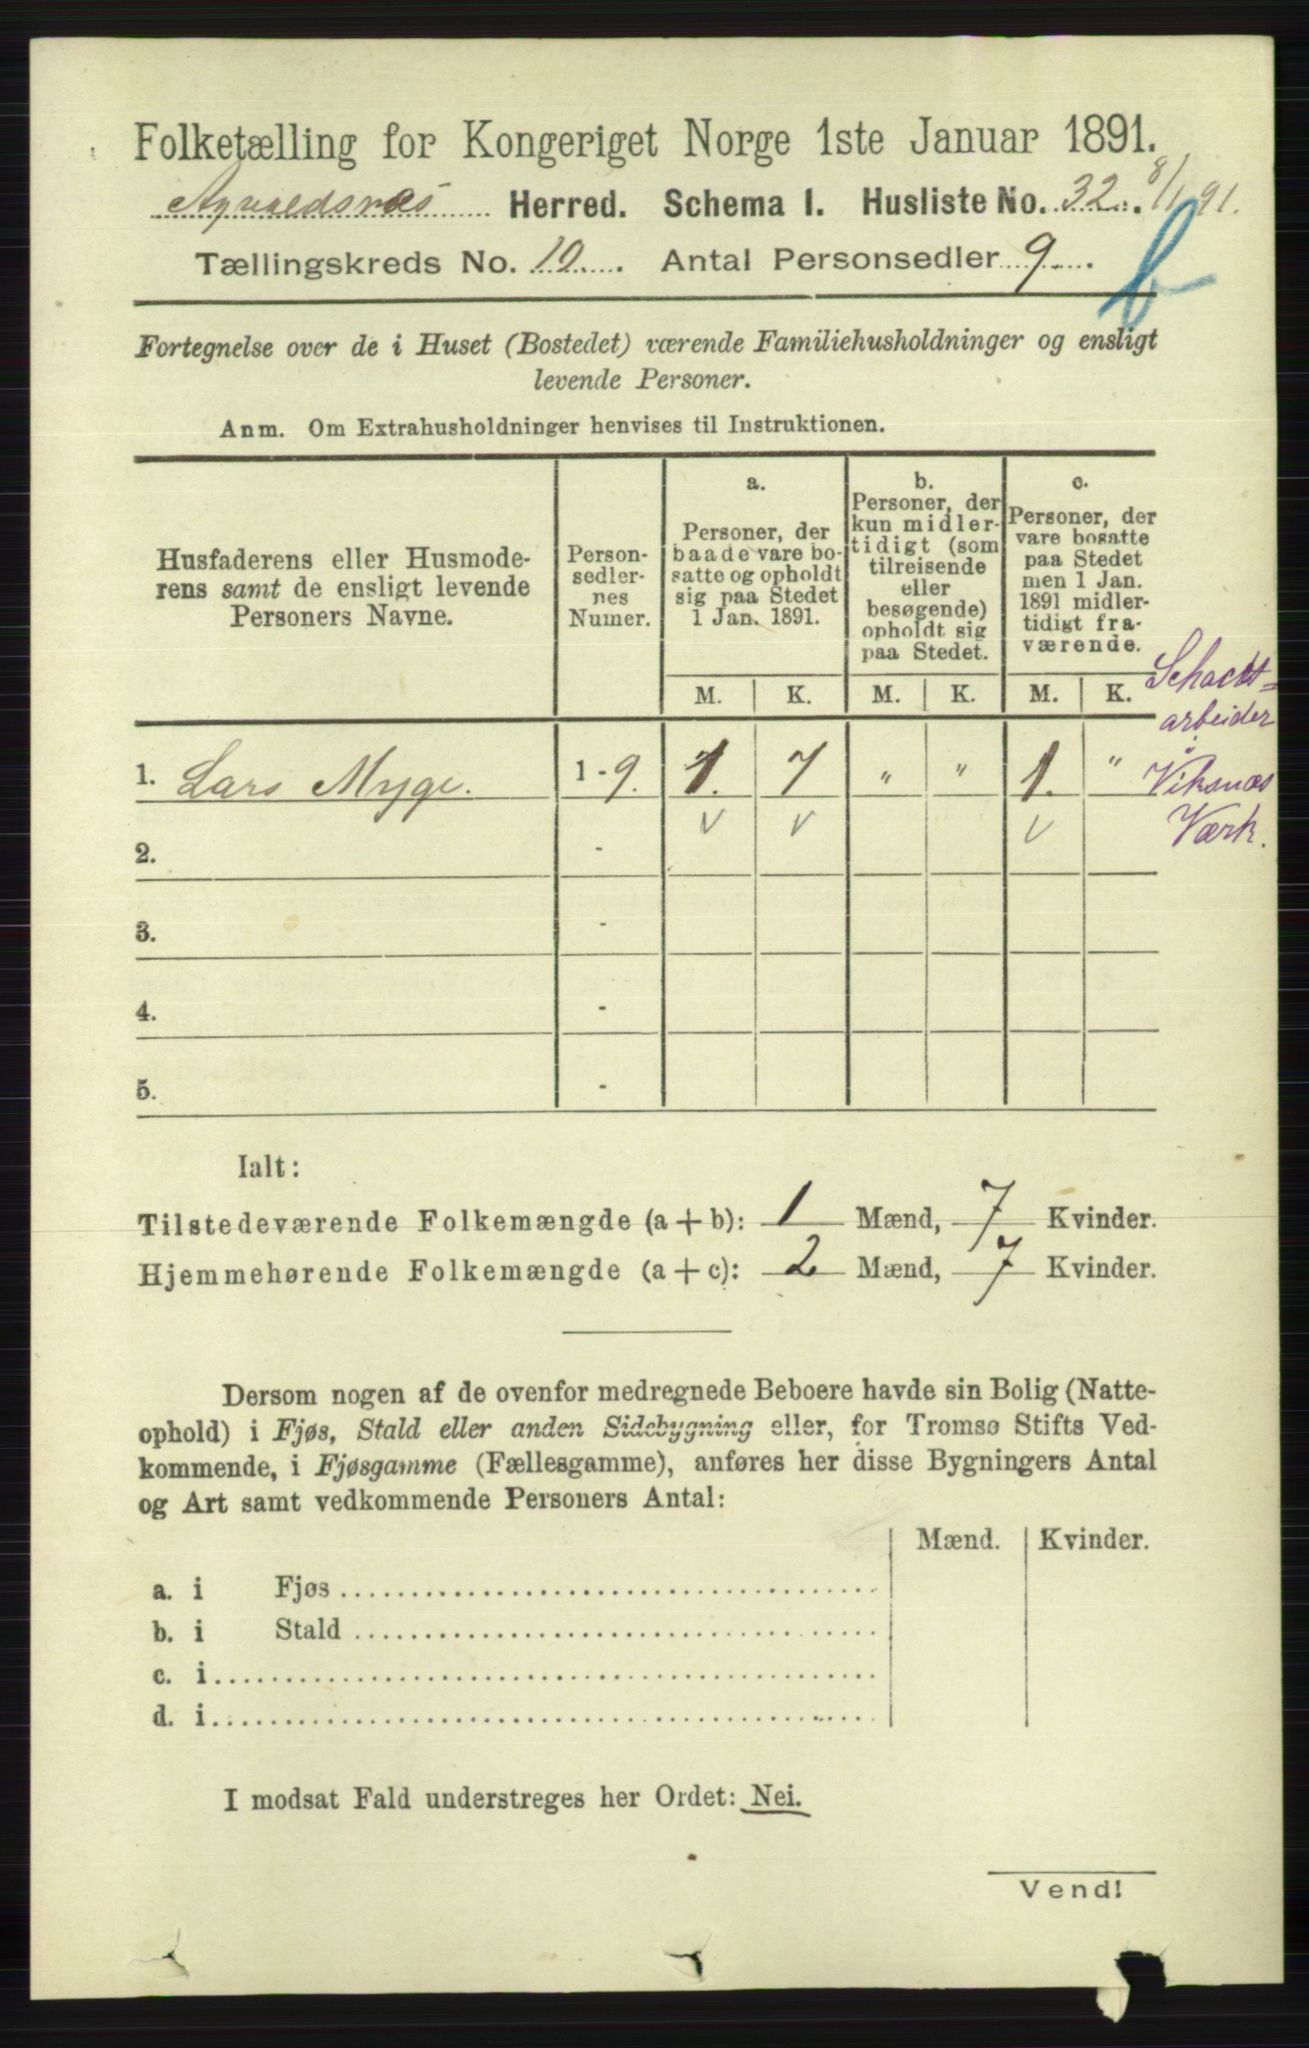 Folketælling for Kongeriget Norge 1ste Januar 1891.
Herred. Schema 1. Husliste No. 32. 8/1 91.
Tællingskreds No. 10. Antal Personsedler 9.
Fortegnelse over de i Huset (Bostedet) værende Familiehusholdninger og ensligt
levende Personer.
Anm. Om Extrahusholdninger henvises til Instruktionen.
Husfaderens eller Husmode-
rens samt de ensligt levende
Personers Navne.
Person-
sedler-
nes
Numer.
a.
Personer, der
baade vare bo-
satte og opholdt
sig paa Stedet
1 Jan. 1891.
b.
Personer, der
kun midler-
tidigt (som
tilreisende
eller
besøgende)
opholdt sig
paa Stedet.
c.
Personer, der
vare bosatte
paa Stedet
men 1 Jan.
1891 midler-
tidigt fra-
værende.
M. K. M. K. M. K.
Schacht-
arbeider
1. Lars Myge. 1 - 9. 1. 7 " " 1. " Viksnæs
Værk.
2. -
3. -
4. -
5. -
Ialt:
Tilstedeværende Folkemængde (a + b): 1 Mænd, 7 Kvinder.
Hjemmehørende Folkemængde (a + c): 2 Mænd, 7 Kvinder.
Dersom nogen af de ovenfor medregnede Beboere havde sin Bolig (Natte-
ophold) i Fjøs, Stald eller anden Sidebygning eller, for Tromsø Stifts Ved-
kommende, i Fjøsgamme (Fællesgamme), anføres her disse Bygningers Antal
og Art samt vedkommende Personers Antal:
Mænd. Kvinder.
a. i Fjøs
b. i Stald
c. i
d. i
I modsat Fald understreges her Ordet: Nei.
Vend!